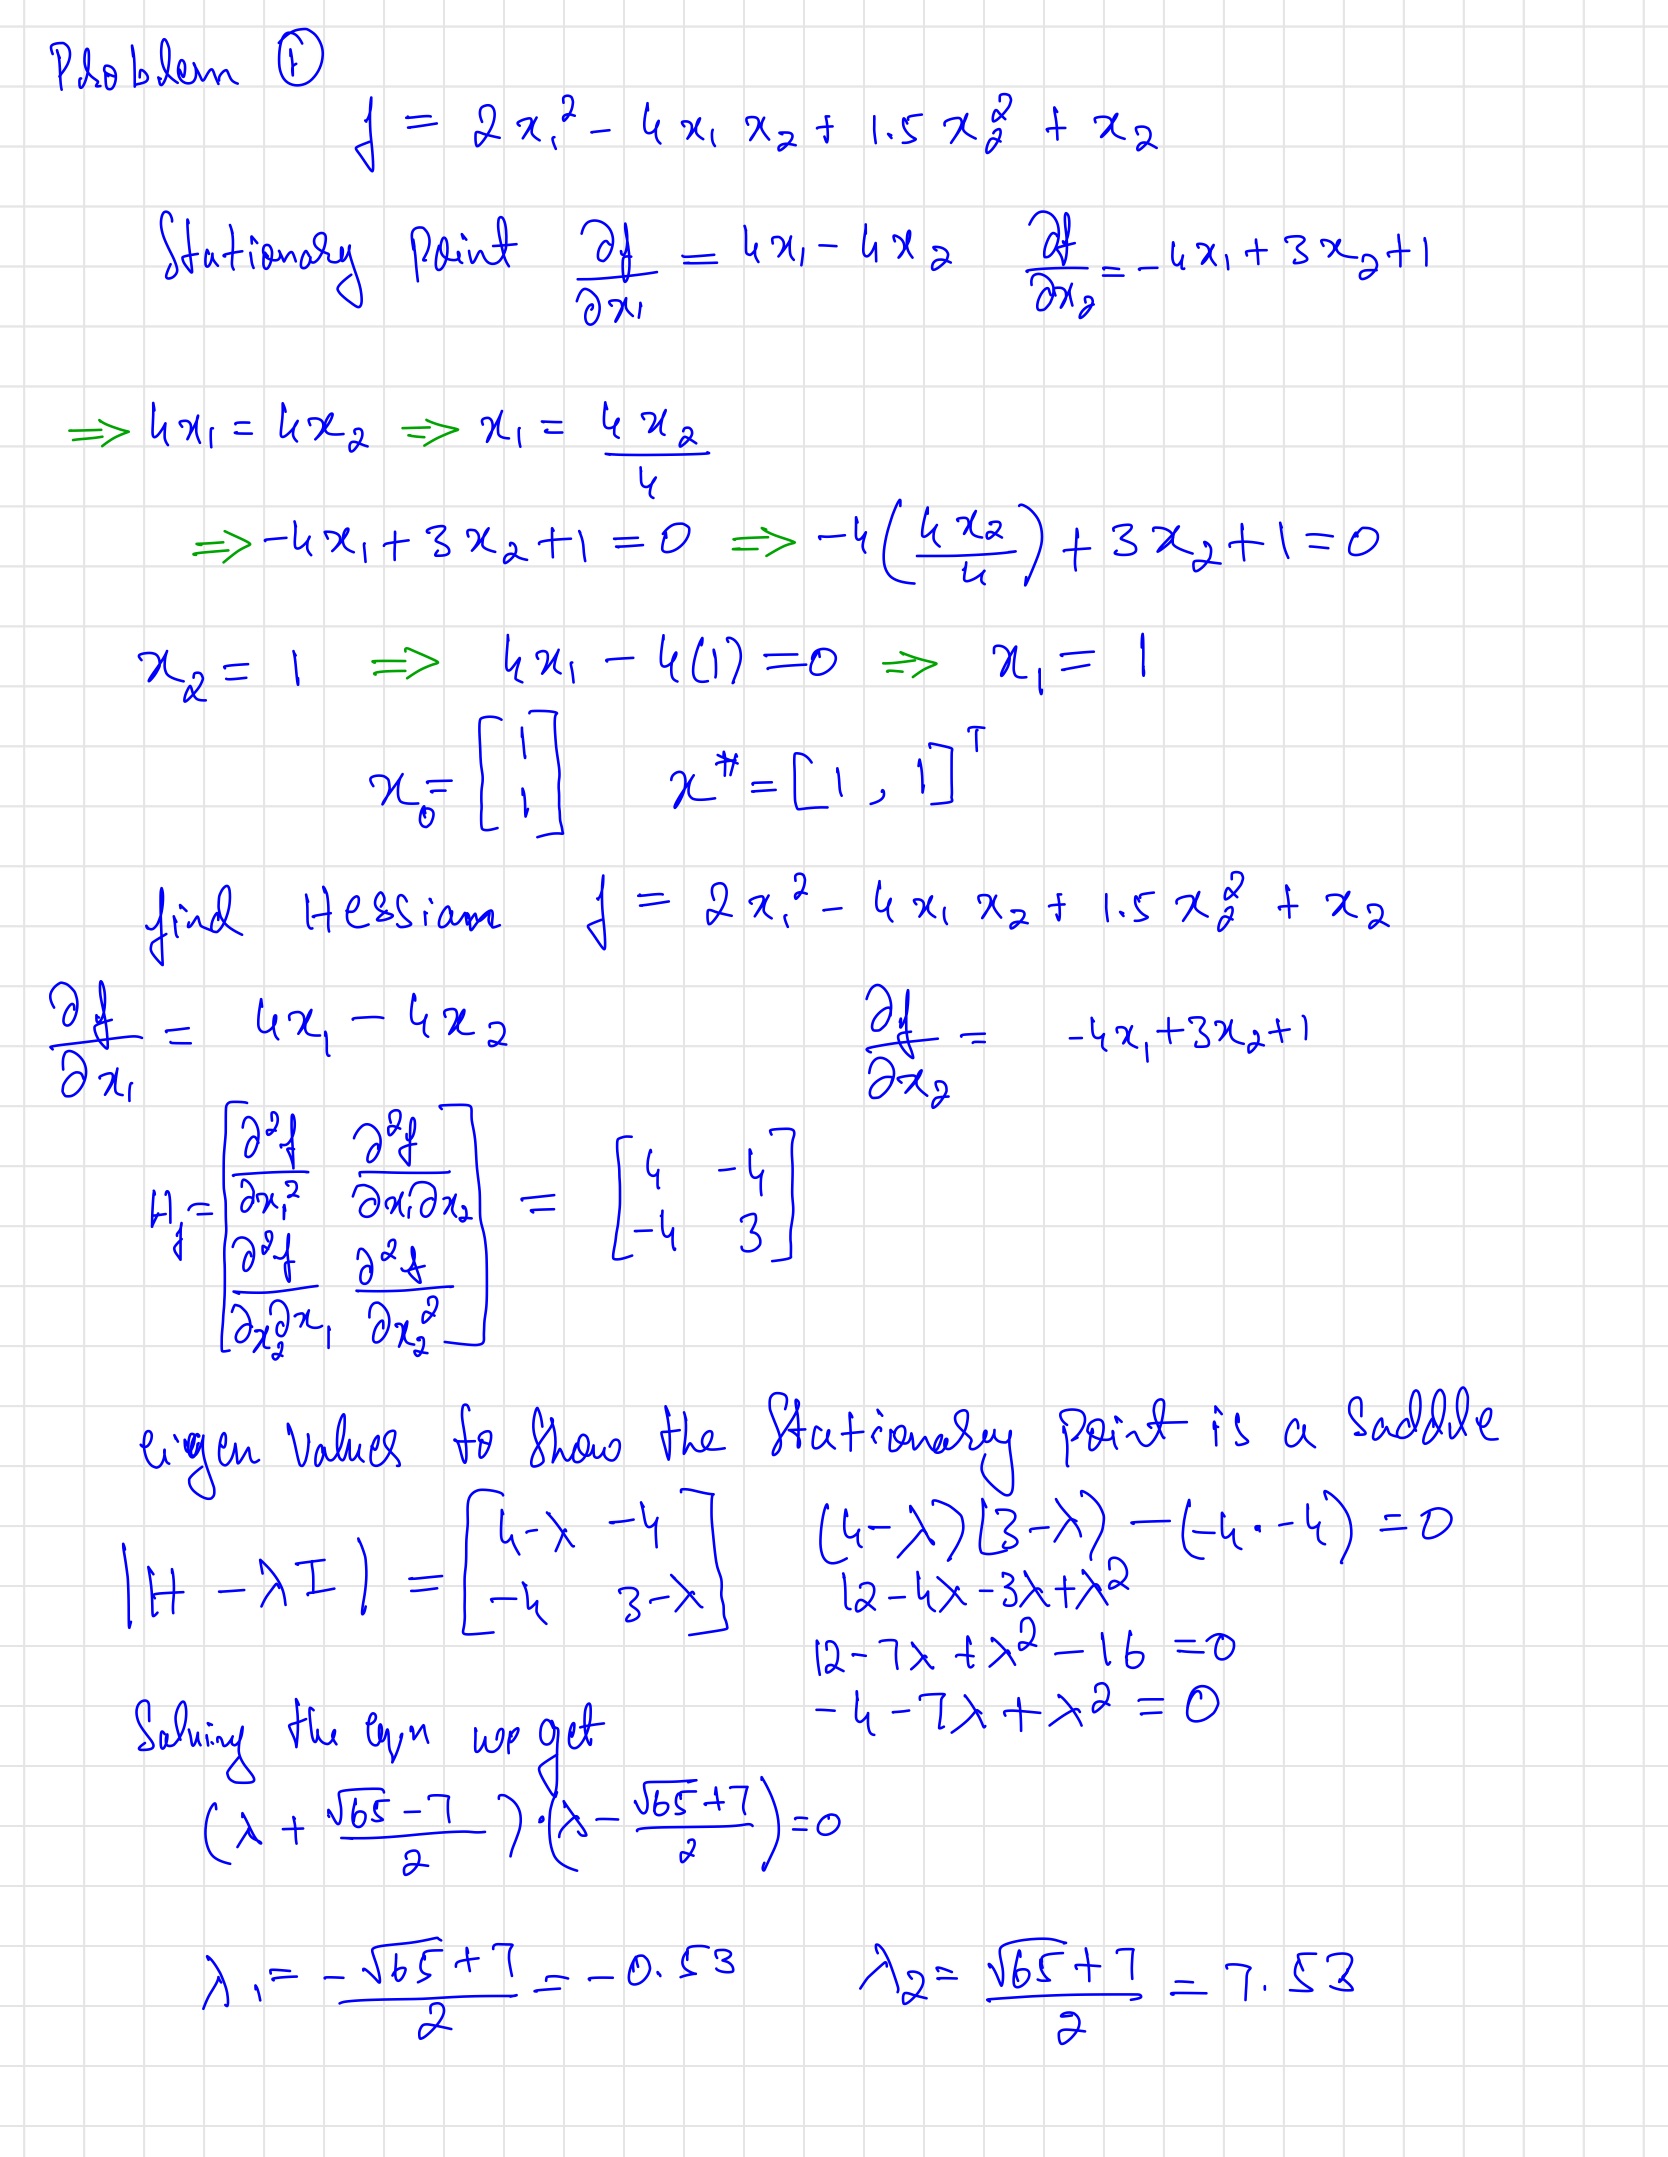 Problem ①
f = 2x₁² - 4x₁x₂ + 1.5x₂² + x₂
Stationary Point ∂f/∂x₁ = 4x₁ - 4x₂ ∂f/∂x₂ = -4x₁ + 3x₂ + 1
⇒ 4x₁ = 4x₂ ⇒ x₁ = 4x₂/4
⇒ -4x₁ + 3x₂ + 1 = 0 ⇒ -4(4x₂/4) + 3x₂ + 1 = 0
x₂ = 1 ⇒ 4x₁ - 4(1) = 0 ⇒ x₁ = 1
x₀ = [1; 1] x* = [1, 1]ᵀ
find Hessian f = 2x₁² - 4x₁x₂ + 1.5x₂² + x₂
∂f/∂x₁ = 4x₁ - 4x₂ ∂f/∂x₂ = -4x₁+3x₂+1
H_f = [∂²f/∂x₁² ∂²f/∂x₁∂x₂; ∂²f/∂x₂∂x₁ ∂²f/∂x₂²] = [4 -4; -4 3]
eigen values to show the Stationary Point is a saddle
|H - λI| = [4-λ -4; -4 3-λ] (4-λ)(3-λ) - (-4·-4) = 0
12 - 4λ - 3λ + λ²
12 - 7λ + λ² - 16 = 0
-4 - 7λ + λ² = 0
Solving the eqn we get
(λ + √65-7/2)·(λ - √65+7/2) = 0
λ₁ = -√65+7/2 = -0.53 λ₂ = √65+7/2 = 7.53